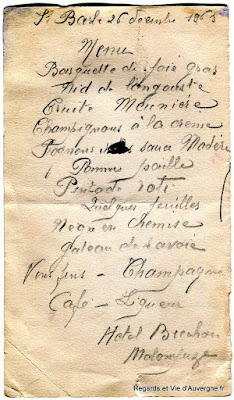 St Bard 26 décembre 1965
Menu
Barquette de foie gras
Nid de langouste
Truite Meunière
Champignons à la crème
Rognons sauce Madère
Pommes paille
Pintade roti
Quelques feuilles
Negre en chemise
Gateau de Savoie
Vins fins - Champagne
Café - Liqueur
Hotel
Regards et Vie d'Auvergne.fr